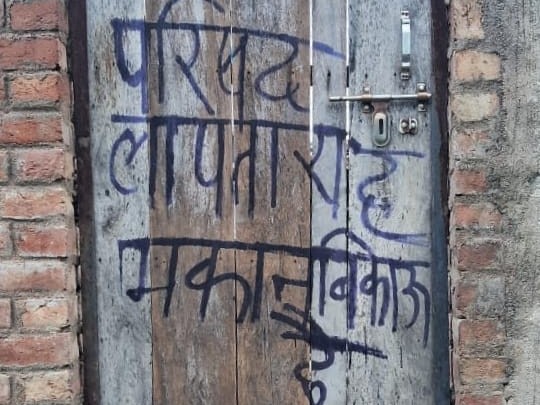 परिषद
लापता यह
मकान बिकाऊ
है